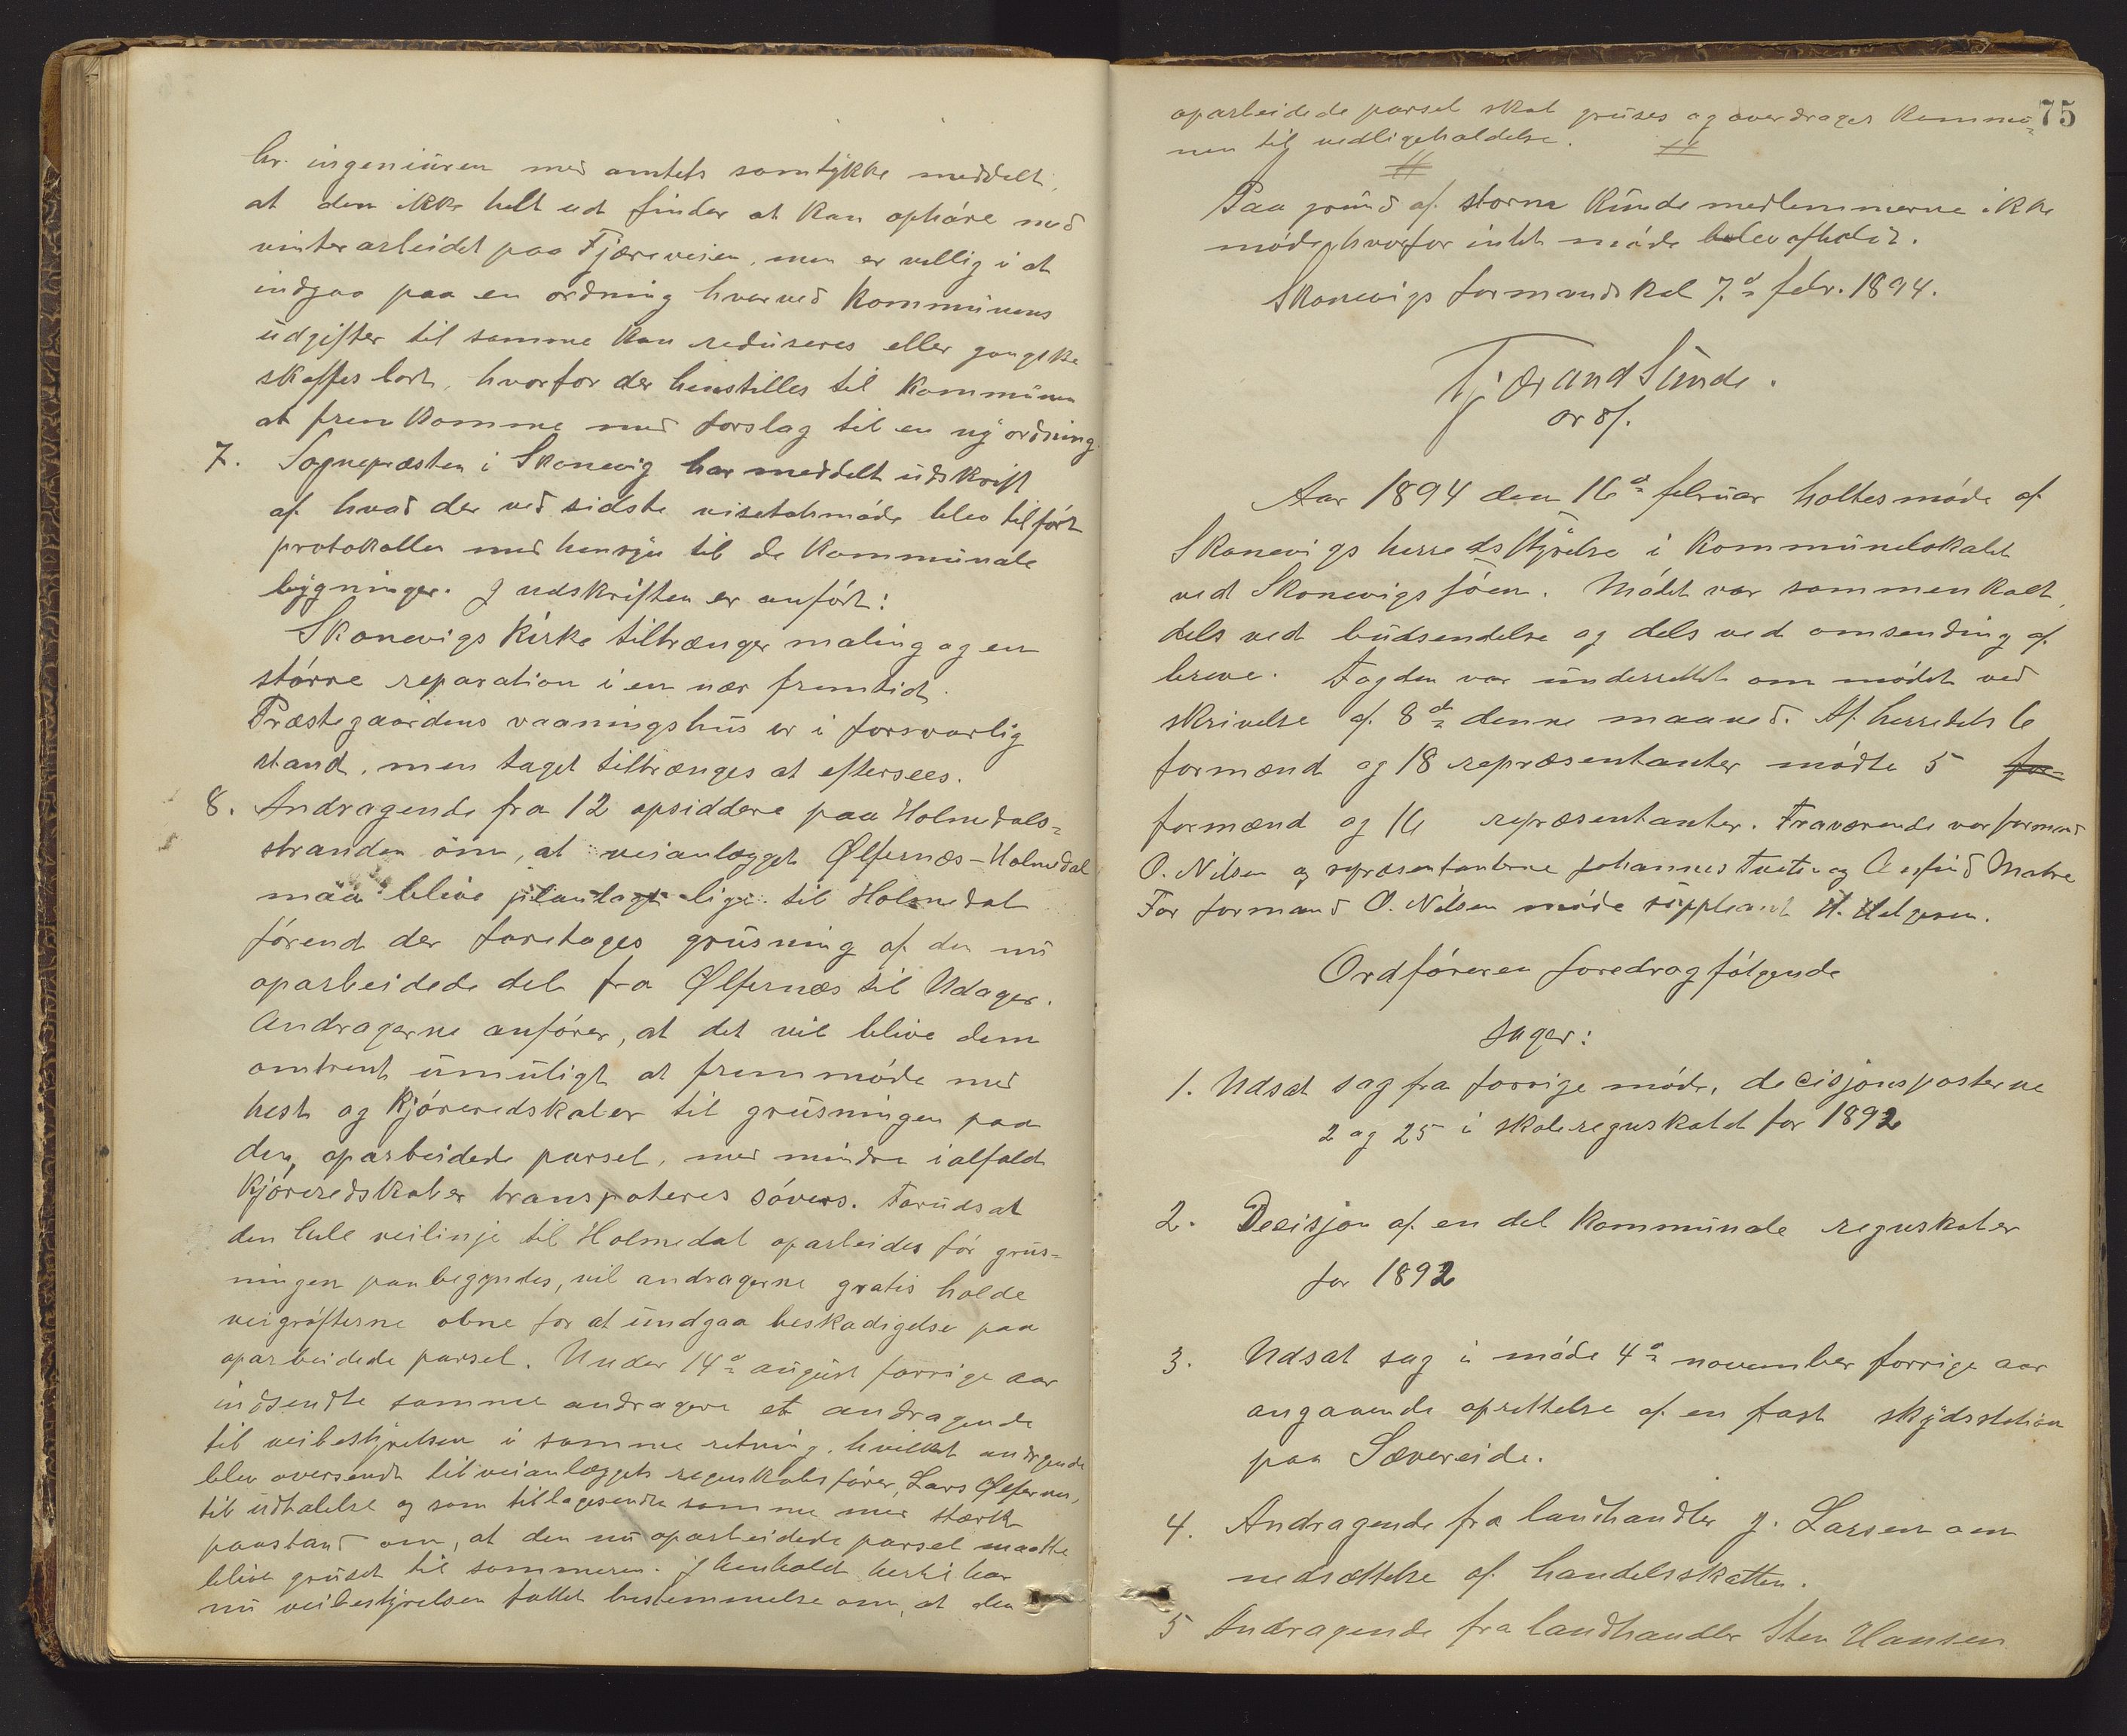 hr. ingeniüren med amtets samtykke meddelt,
at den ikke helt ud finder at kan ophøre med
vinterarbeidet paa Fjæreveien, men er villig i at
indgaa paa en ordning hvorved kommunens
udgifter til samme kan reduseres eller gangske
skaffes bort, hvorfor der henstilles til kommunen
at fremkomme med forslag til en ny ordning.
7. Sognepræsten i Skonevig har meddelt udskrift
af hvad der ved sidste visetatsmøde blev tilført
protokollen med hensyn til de kommunale
bygninger. I udskriften er anført:
Skonevigs kirke tiltrænger maling og en
større reparation i en nær fremtid.
Præstegaardens vaaningshus er i forsvarlig
stand, men taget tiltrænges at eftersees.
8. Andragende fra 12 opsiddere paa Holmedals=
stranden om, at veianlægget Ølfernæs-Holmedal
maa blive planlagt lige til Holmedal
førend der foretages grusning af den nu
oparbeidede del fra Ølfernæs til Udager.
Andragerne anfører, at det vil blive dem
omtrent umuligt at fremmøde med
hest og kjøreredskaber til grusningen paa
den, oparbeidede parsel, med mindre ialfald
kjøreredskaber transpoteres søvers. Forudsat
den hele veilinje til Holmedal oparbeides før grus=
ningen paabegyndes, vil andragerne gratis holde
veigrøfterne obne for at undgaa beskadigelse paa
oparbeidede parsel. Under 14d august forrige aar
indsendte samme andragere et andragende
til veibestyrelsen i samme retning, hvilket andrgende
blev oversendt til veianlæggets regnskabsfører, Lars Ølfernes,
til udtalelse og som tilbagesendte samme med stærk
paastand om, at den nu oparbeidede parsel maatte
blive gruset til sommeren. I henhold hertil har
nu veibestyrelsen fattet bestemmelse om, at den
75
oparbeidede parsel skal gruses og overdrages kommu=
nen til vedligeholdelse.
Paa grund af storm kunde medlemmerne ikke
møde, hvorfor intet møde blev afholdt.
Skonevigs formandskab 7d febr. 1894.
Tjærand Sunde.
orf.
Aar 1894 den 16d februar holtes møde af
Skonevigs herredsstyrelse i kommunelokalet
ved Skonevigsjøen. Mødet var sammenkalt,
dels ved budsendelse og dels ved omsending af
breve. Fogden var underrettet om mødet ved
skrivelse af 8de denne maaned. Af herredets 6
formænd og 18 repræsentanter mødte 5 for=
formænd og 16 repræsentanter. Fraværende var formand
O. Nilsen og repræsentanterne Johannes Tveten og Aasfind Matre
For formand O. Nilsen møde suppleant H. Helgesen.
Ordføreren foredrog følgende
sager:
1. Udsat sag fra forrige møde, decisjonsposterne
2 og 25 i skoleregnskabet for 1892
2. Decisjon af en del kommunale regnskaber
for 1892
3. Udsat sag i møde 4d november forrige aar
angaaende oprettelse af en fast skydsstation
paa Sævereide.
4. Andragende fra landhandler J. Larsen om
nedsættelse af handelsskatten.
5 Andragende fra landhandler Sten Hansen